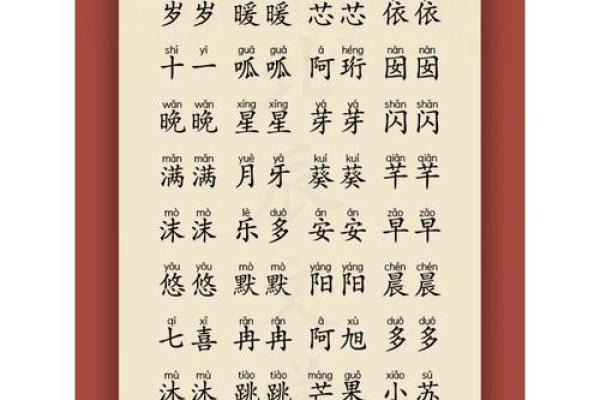 岁岁 暖暖 芯芯 依依
shí yī guā guā ā héng nān nān
十一 呱呱 阿珩 囡囡
wǎn wǎn xīng xīng yá yá shǎn shǎn
晚晚 星星 芽芽 闪闪
mǎn mǎn yuè yá kuí kuí qiān qiān
满满 月牙 葵葵 芊芊
mò mò lè duō ān ān zǎo zǎo
沫沫 乐多 安安 早早
yōu yōu mò mò yáng yáng chén chén
悠悠 默默 阳阳 晨晨
qī xǐ rǎn rǎn ā xù duō duō
七喜 冉冉 阿旭 多多
mù mù tiào tiào máng guǒ xiǎo sū
沐沐 跳跳 芒果 小苏